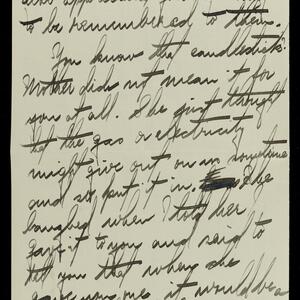 to be remembered to them.
You know the candlestick?
Mother did not mean it for
you at all. She just thought
that the gas or electricity
might give out on us sometime
and so put it in. She
laughed when I told her I
gave it to you and said to
tell you that when she
gave you one it would be a